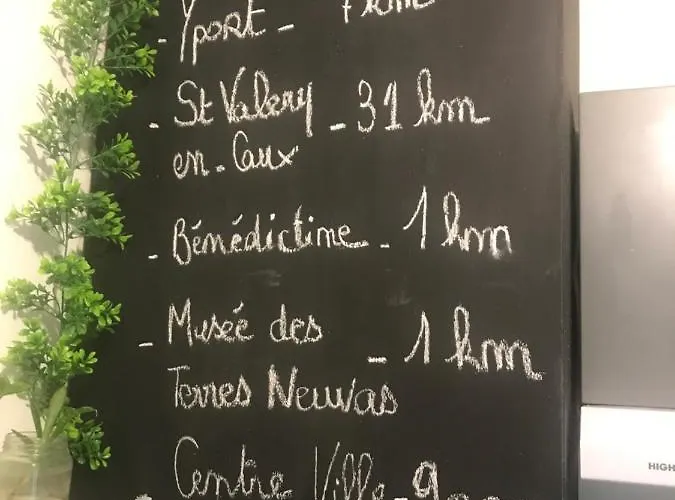 - Yport - 7 km
- St Valery - 31 km
en-Caux
- Bénédictine - 1 km
- Musée des
Terres Neuvas - 1 km
- Centre Ville - 900
HIGH